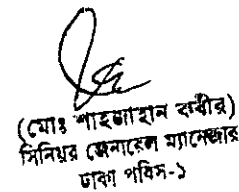 (মোঃ শাহজাহান কবীর)
সিনিয়র জেনারেল ম্যানেজার
ঢাকা পবিস-১